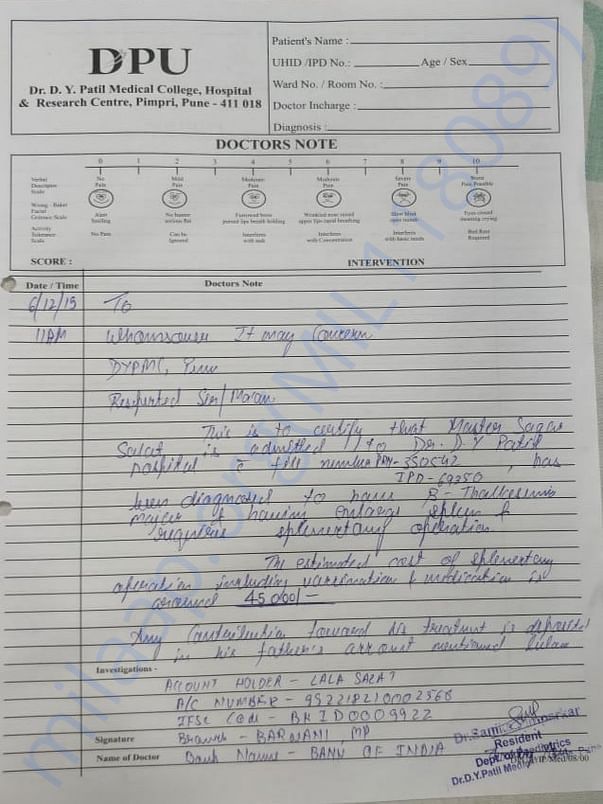 DPU
Dr. D. Y. Patil Medical College, Hospital
& Research Centre, Pimpri, Pune - 411 018
Patient's Name :
UHID /IPD No.: Age / Sex
Ward No. / Room No. :
Doctor Incharge :
Diagnosis :
DOCTORS NOTE
0 1 2 3 4 5 6 7 8 9 10
Verbal Descriptor Scale
No Pain
Mild Pain
Moderate Pain
Moderate Pain
Severe Pain
Worst Pain Possible
Wong - Baker Facial Grimace Scale
Alert Smiling
No humor serious flat
Furrowed brow pursed lips breath holding
Wrinkled nose raised upper lips rapid breathing
Slow blink open mouth
Eyes closed moaning crying
Activity Tolerance Scale
No Pain
Can be Ignored
Interferes with task
Interferes with Concentration
Interferes with basic needs
Bed Rest Required
SCORE : INTERVENTION
Date / Time Doctors Note
6/12/19 To
11AM It may Concern
DYPMC, Pune
Respected Sir/Maam
This is to certify that Master Sagar
Salat is admitted to Dr. D.Y Patil
hospital c file number 350542, has
IPD-69350
been diagnosed to have B-
major & having spleen &
requires operation
The estimated cost of
operation including vaccination & medication is
around 45000/-
Any Contribution toward his treatment is
in his father's account mentioned below
Investigations -
ACCOUNT HOLDER - LALA SALAT
A/C NUMBER -
IFSC Code - BKID0009922
Signature Branch - BARWANI, MP
Name of Doctor Bank Name - BANK OF INDIA
Resident
Dept. of Paediatrics
Dr.D.Y.Patil
milaap.org